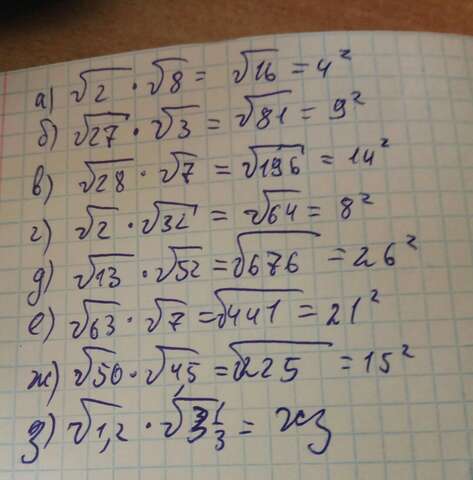 а) √2 · √8 = √16 = 4²
б) √27 · √3 = √81 = 9²
в) √28 · √7 = √196 = 14²
г) √2 · √32 = √64 = 8²
д) √13 · √52 = √676 = 26²
е) √63 · √7 = √441 = 21²
ж) √50 · √4,5 = √225 = 15²
з) √1,2 · √3⅓ = хз